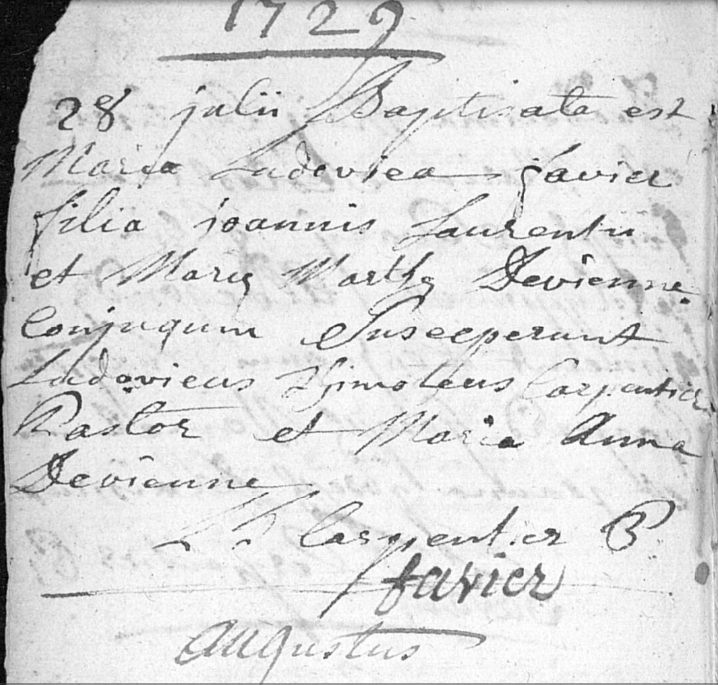 1729
28 julii Baptisata est
Maria Ludovica Favier
filia joannis Laurentii
et Marię Marthę Devienne
Conjugum Susceperunt
Ludovicus Thimoteus Carpentier
Pastor et Maria Anna
Devienne
Carpentier P
favier
Augustus